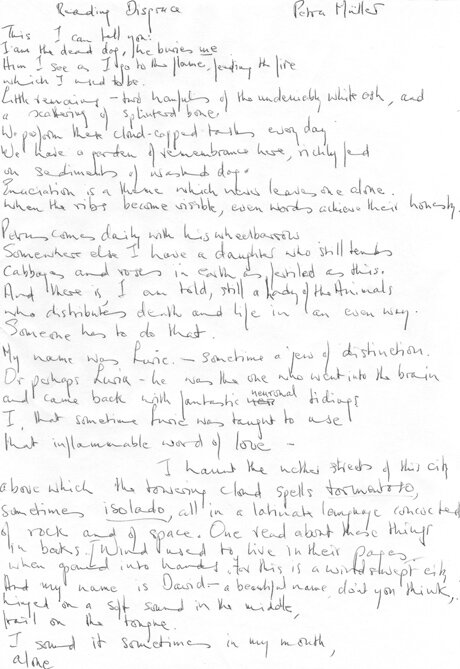 Reading Disgrace Petra Müller
This I can tell you:
I am the dead dog, he buries me
Him I see as I go to the flame, feeding the fire
which I used to be.
Little remains – two handfuls of the undeniably white ash, and
a scattering of splintered bone.
We perform these cloud-capped tasks every day
We have a garden of remembrance here, richly fed
on sediments of washed dog.
Emaciation is a theme which never leaves one alone.
When the ribs become visible, even words achieve their honesty.
Petrus comes daily with his wheelbarrow
Somewhere else I have a daughter who still tends
Cabbages and roses in earth as fertiled as this.
And there is, I am told, still a Lady of the Animals
who distributes death and life in an even way.
Someone has to do that.
My name was Lurie. – sometime a jew of distinction.
Or perhaps Luria – he was the one who went into the brain
and came back with fantastic neuronal tidings
I, that sometime Lurie was taught to use
that inflammable word of love –
I haunt the nether streets of this city
above which the towering cloud spells tormentoso,
sometimes isolado, all in a latinate language concocted
of rock and of space. One read about these things
in books. Wind used to live in their pages
when opened into hands, for this is a windswept city
And my name is David – a beautiful name, don't you think,
hinged on a soft sound in the middle,
frail on the tongue.
I sound it sometimes in my mouth,
alone